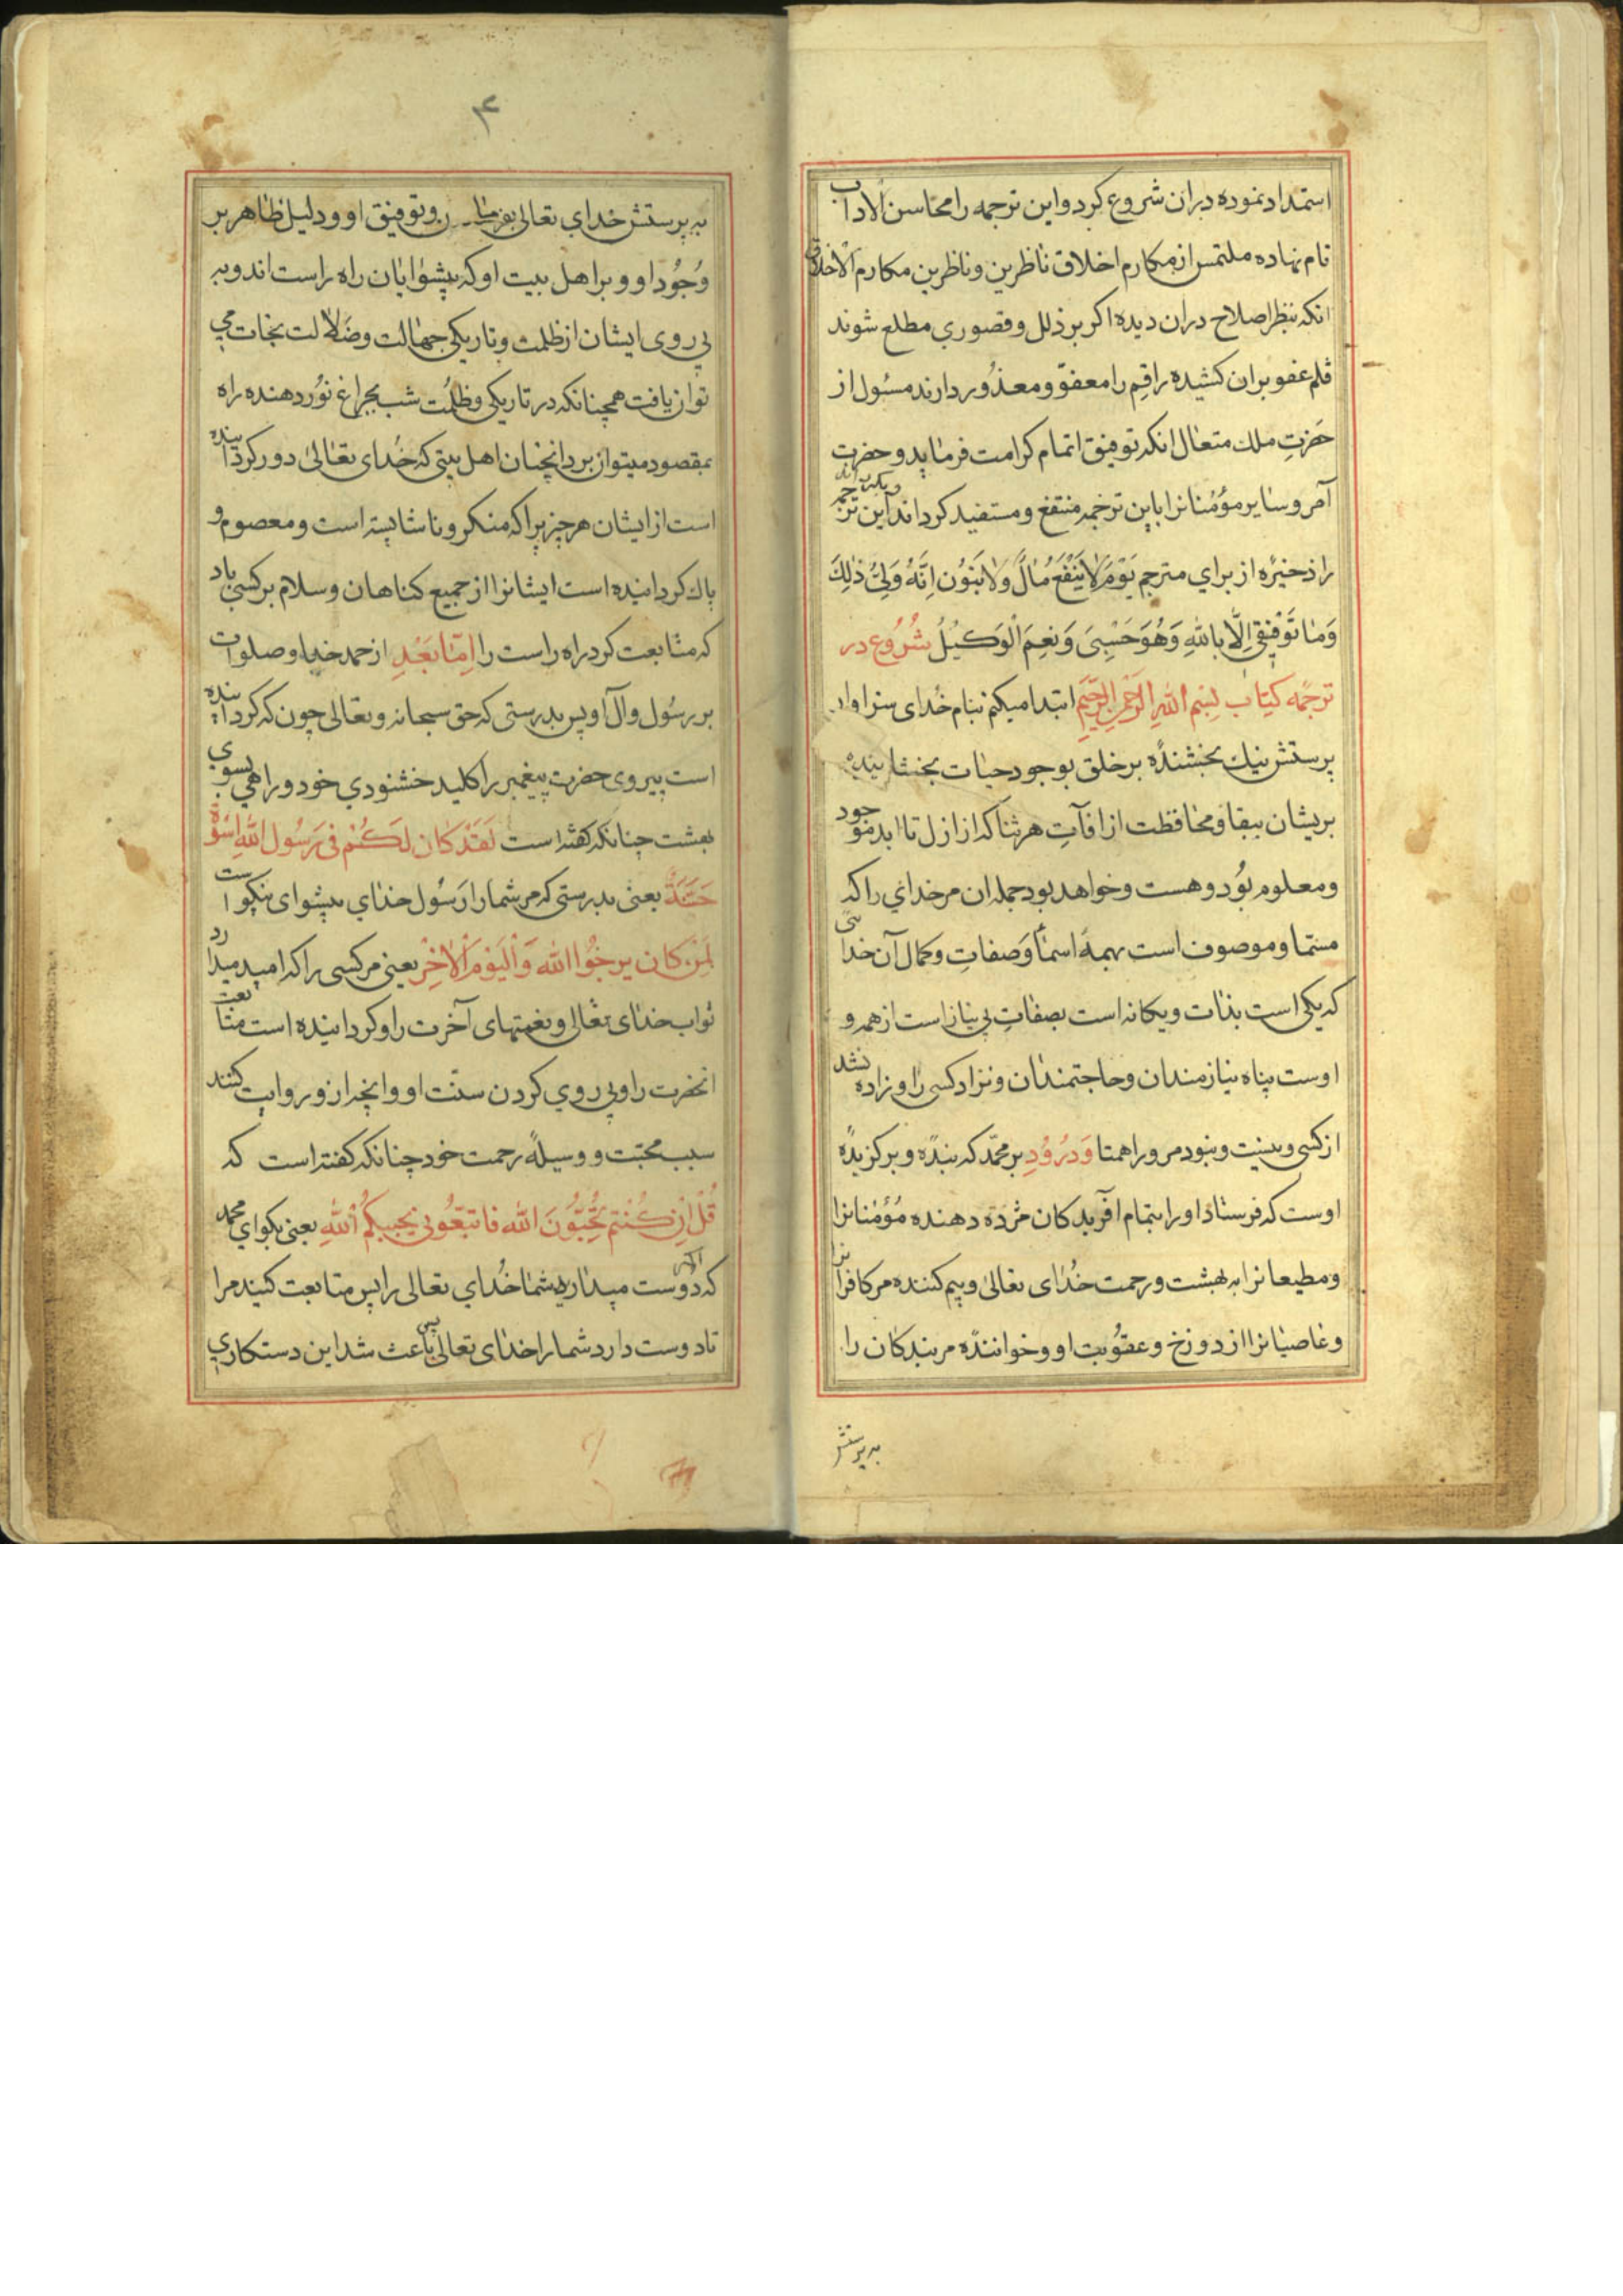 استمداد نموده دران شروع کرد و این ترجمه را محاسن الاداب
نام نهاده ملتمس از مکارم اخلاق ناظرین و ناظرین مکارم الاخلاق
انکه بنظر اصلاح دران دیده اکر بر ذلل و قصوری مطلع شوند
قلم عفو بران کشیده راقم را معفوّ و معذُور دارند مسئول از
حَضرتِ ملك متعال انکه توفیق اتمام کرامت فرماید و حضرت
آمر و سایر مؤمنانرا باین ترجمه منتفع و مستفید کرداند و این ترجمه
را ذخیرهٔ از برای مترجم یَوْمَ لاٰ یَنْفَعُ مٰالٌ وَلاٰ بَنُوُن اِنَّهُ وَلِیُّ ذٰلِكَ
وَمٰا تَوْفیٖقی اِلّٰا بِاللّٰهِ وَهُوَ حَسْبِیَ وَنِعِمَ الْوَکیٖلُ شُرُوُع در
ترجَمهٔ کِتٰاب بِسْمِ اللّٰهِ الرَّحْمٰنِ الرَّحیٖمِ ابتدا میکنم بنام خُدای سزاوار
پرستش نیك بخشندهٔ بر خلق بوجود حیات بخشاینده
بریشان ببقا و محافظت از افآت هر ثنا که از ازل تا ابد موجود
و معلوم بُود و هست و خواهد بود جمله ان مر خدای را که
مسمّا و موصوف است بهمهٔ اسمآ و صفاتِ و کمال آن خدائی
که یکی است بذات و یکانه است بصفاتِ بی نیاز است از همه و
اوست پناه نیازمندان و حاجتمندان و نزاد کسی را و زاده نشد
از کسی و نیست و نبود مر ورا همتا وَ درُوُدِ بر محمّد که بندهٔ و برکزیدهٔ
اوست که فرستاد او را بتمام آفریدکان مژده دهنده مُؤمنانرا
و مطیعانرا به بهشت و رحمت خُدای تعالیٰ و بیم کننده مر کافرانرا
و عاصیانرا از دوزخ و عقوُبت او و خوانندهٔ مر بندکان را
به پرستش
۴
به پرستش خدای تعالی بفرمان و توفیق او و دلیل ظاهر بر
وُجوُد او و بر اهل بیت او که پیشوایان راه راست اند و به
پی روی ایشان از ظلمت و تاریکی جهالت وضَلالت نجات می
توان یافت همچنانکه در تاریکی وظلمُت شب بچراغ نوُر دهنده راه
بمقصود میتوان برد انچنان اهل بیتی که خُدای تعالیٰ دور کردانیده
است از ایشان هر چیزیرا که منکر و ناشایسته است و معصوم و
پاك کردانیده است ایشانرا از جمیع کناهان و سلام بر کسی باد
که متابعت کرد راه راست را اِمّٰا بَعْدِ از حمد خدا و صلوات
بر رسُول و آل او پس بدرستی که حق سبحانه و تعالی چون که کردانیده
است پیروی حضرت پیغمبر را کلید خشنودی خود و راهی بسوی
بهشت چنانکه کفته است لَقَدْ کٰان لَکُمْ فی رَسُول اللّٰهِ اُسْوَةٌ
حَسَنَةٌ یعنی بدرستی که مر شما را رَسُول خدای پیشوای نیکو است
لِمَنْ کان یرجُوُا اللّٰه وَالْیَوْمَ الْاٰخِرْ یعنی مر کسی را که امید میدارد
ثواب خدای تعالی و نعمتهای آخرت را و کردانیده است متابعت
انحضرت را و پی روی کردن سنّت او و انچه از و روایت کنند
سبب محبّت و وسیلهٔ رحمت خود چنانکه کفته است که
قُلْ اِنْ کُنْتم تُحِبُّوُنَ اللّٰه فاتبعُّونی یحببکُمُ اللّٰهِ یعنی بکو ای محمد
که اکر دُوست میدارید شما خُدای تعالی را پس متابعت کنید مرا
تا دوست دارد شما را خدای تعالی پس باعث شد این دستکاری